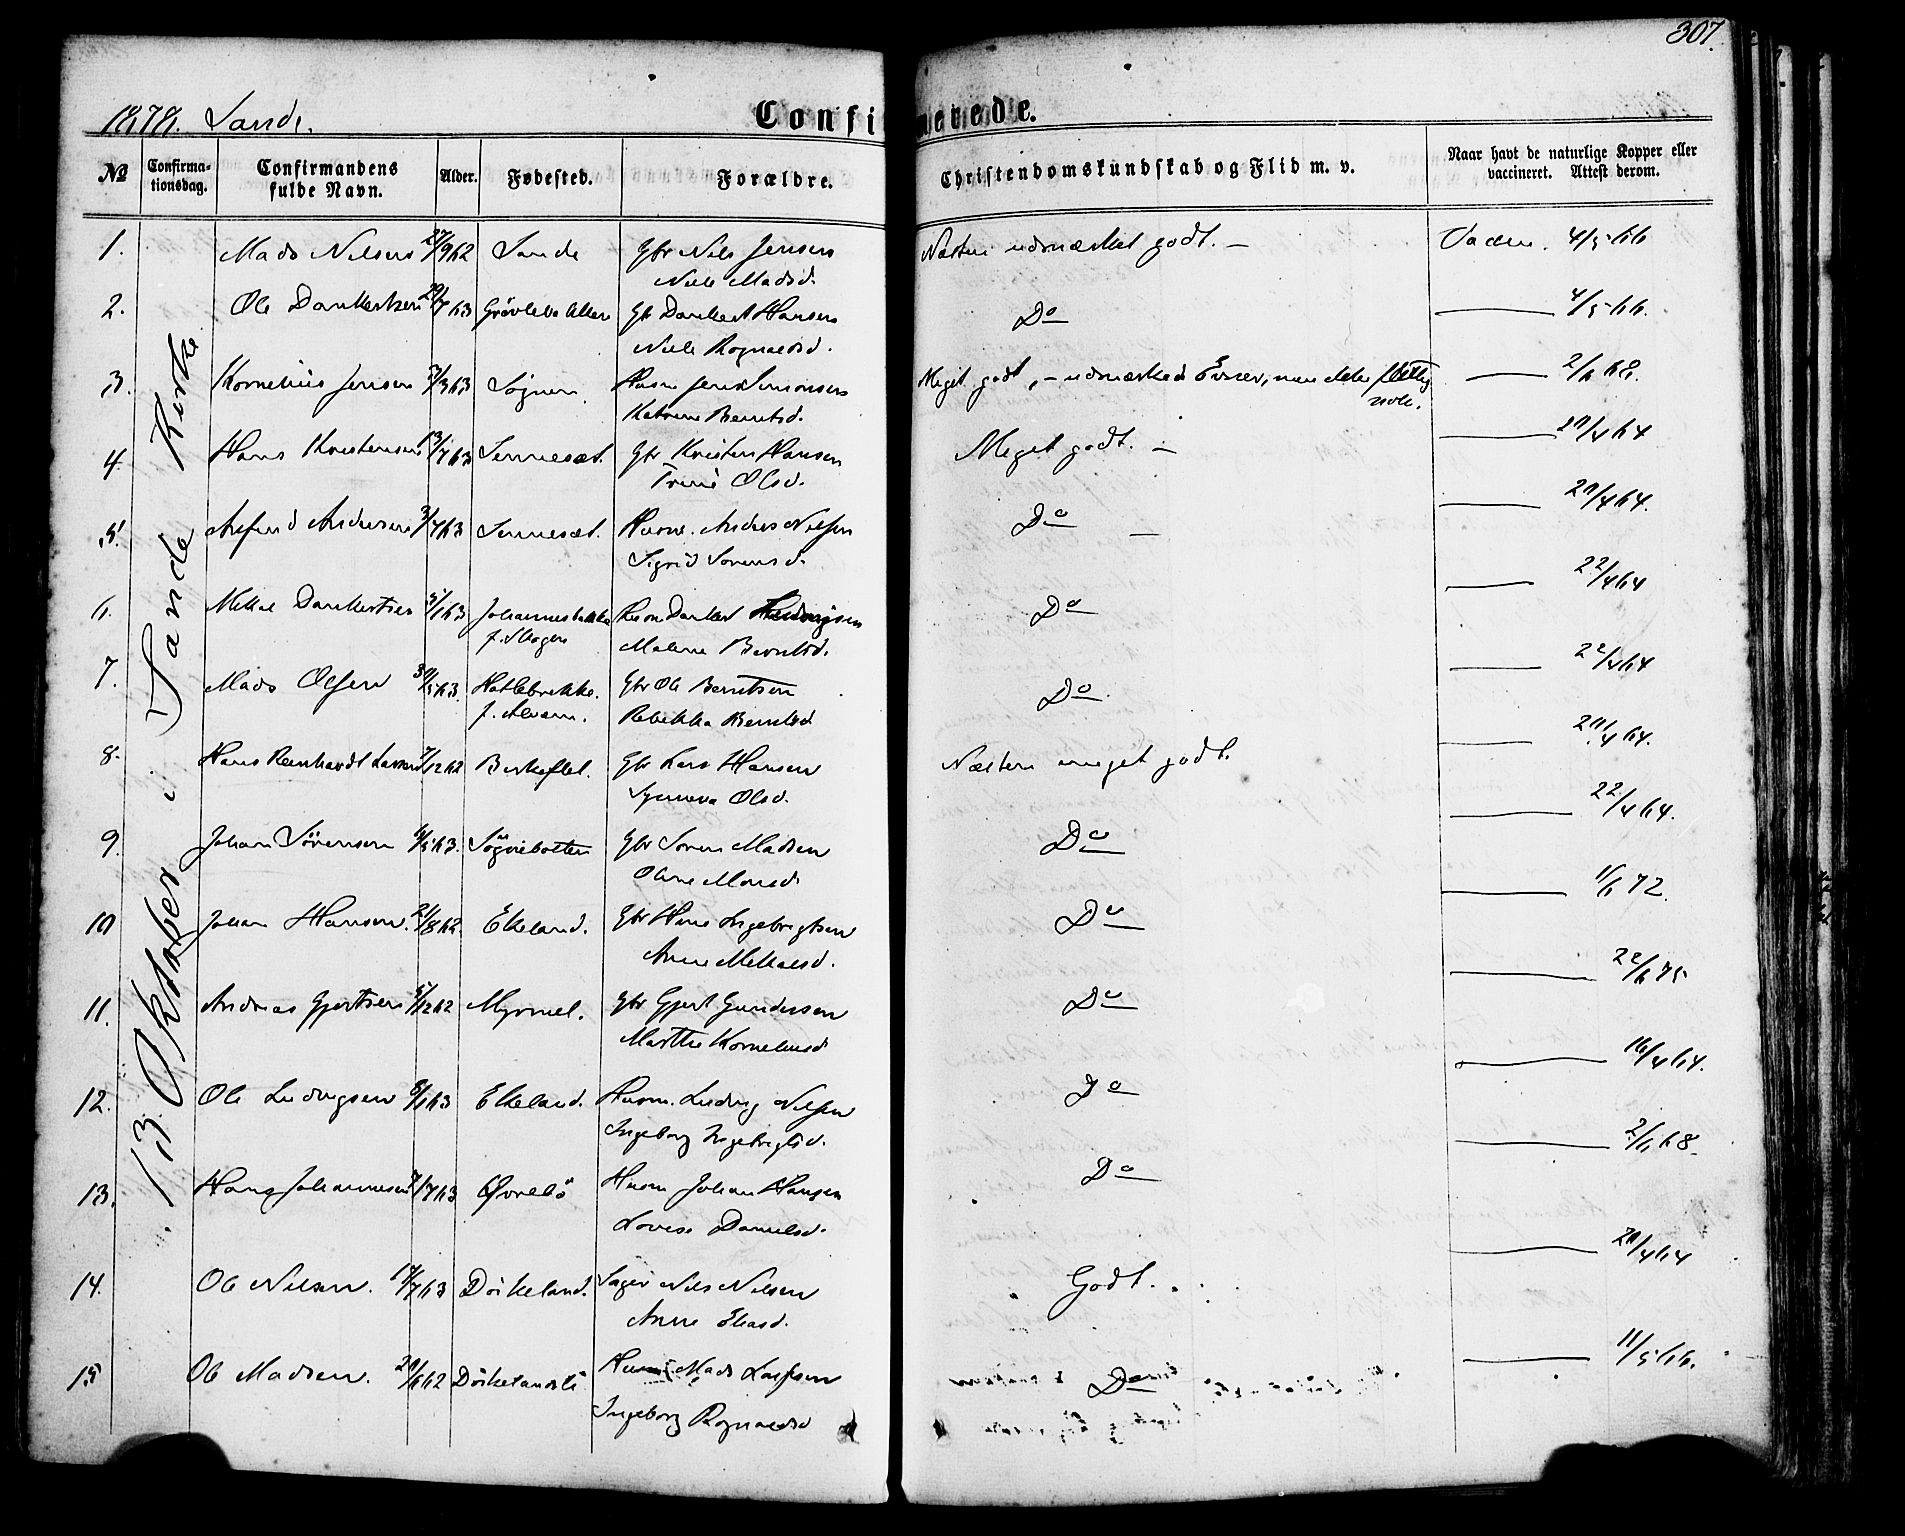 307.
1878. Sande.
Confirmerede.
No
Confirma-
tionsdag.
Confirmandens
fulde Navn.
Alder.
Fødested.
Forældre.
Christendomskundskab og Flid m. v.
Naar havt de naturlige Kopper eller
vaccineret. Attest derom.
13. Oktober i Sande Kirke
1. Mads Nilsen 27/9 62 Sande Gbr Nils Jensen Næsten udmærket godt. — Vaccin. 4/5 66
Nille Madsd.
2. Ole Dankertsen 7 63 Gbr Dankert Hansen Do — 4/5 66.
Nille Rognaldsd.
3. Kornelius Jensen 3/3 63 Husm Jens Simonsen Meget godt, – udmærkede Evner, men ikke flittig — 2/6 68.
nok.
Katrine Berntsd.
4. Hans Kristensen 13/7 63 Sennesæt. Gbr Kristen Hansen Meget godt. — 4 64
Trine Olsd.
5. Andersen 3/7 63 Sennesæt. Husm. Anders Nilsen Do — 4 64.
Sigrid Sorensd.
6. Mikkel Dankertsen 5/1 63 Johannesbakke Husm Dankert Do — 22/4 64
f. Skogen Malene Berntsd.
7. Mads Olsen 5 63. Hatlebrekke. Gbr Ole Berntsen Do — 22/4 64
Rebekka Berntsd
8. Hans Reinhardt Larsen 7/12 62 Birkeflet. Gbr Lars Hansen Næsten meget godt. — 4 64.
Synneva Olsd.
9. Johan Sörensen 6/5 63. Sögnebotten Gbr Soren Madsen Do — 22/4 64.
Oline Monsd.
10 Johan Hansen. 21/8 62 Ekeland. Gbr Hans Ingebrigtsen Do — 1/6 72.
Anne Mikkelsd.
11. Andreas Gjertsen 5/12 62 Myrmel. Gbr Gjert Gundersen Do — 22/6 75
Marthe Korneliusd
12. Ole Ludvigsen 63 Ekeland. Husm. Ludvig Nilsen Do — 16/4 64.
Ingeborg Ingebrigtsd.
13. Hans Johannesen 7/7 63 Øvrebö Husm Johan Hansen Do — 2/6 68.
Lovise Danielsd.
14. Ole Nilsen. 7 63 Döskeland. Nils Nilsen Godt. — 4 64
Anne Eliasd.
15 Ole Madsen. 6 62 Husm Mads Do — 11/5 66.
Ingeborg Rognaldsd